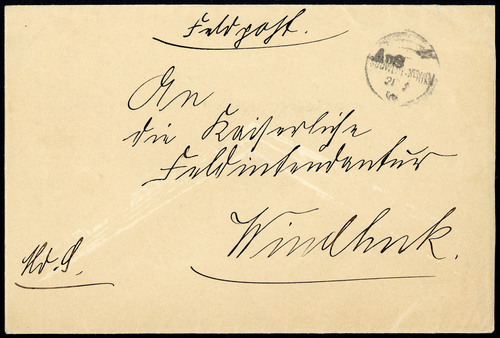 Feldpost.
Aus
An
die Kaiserliche
Feldintendantur
Windhuk.